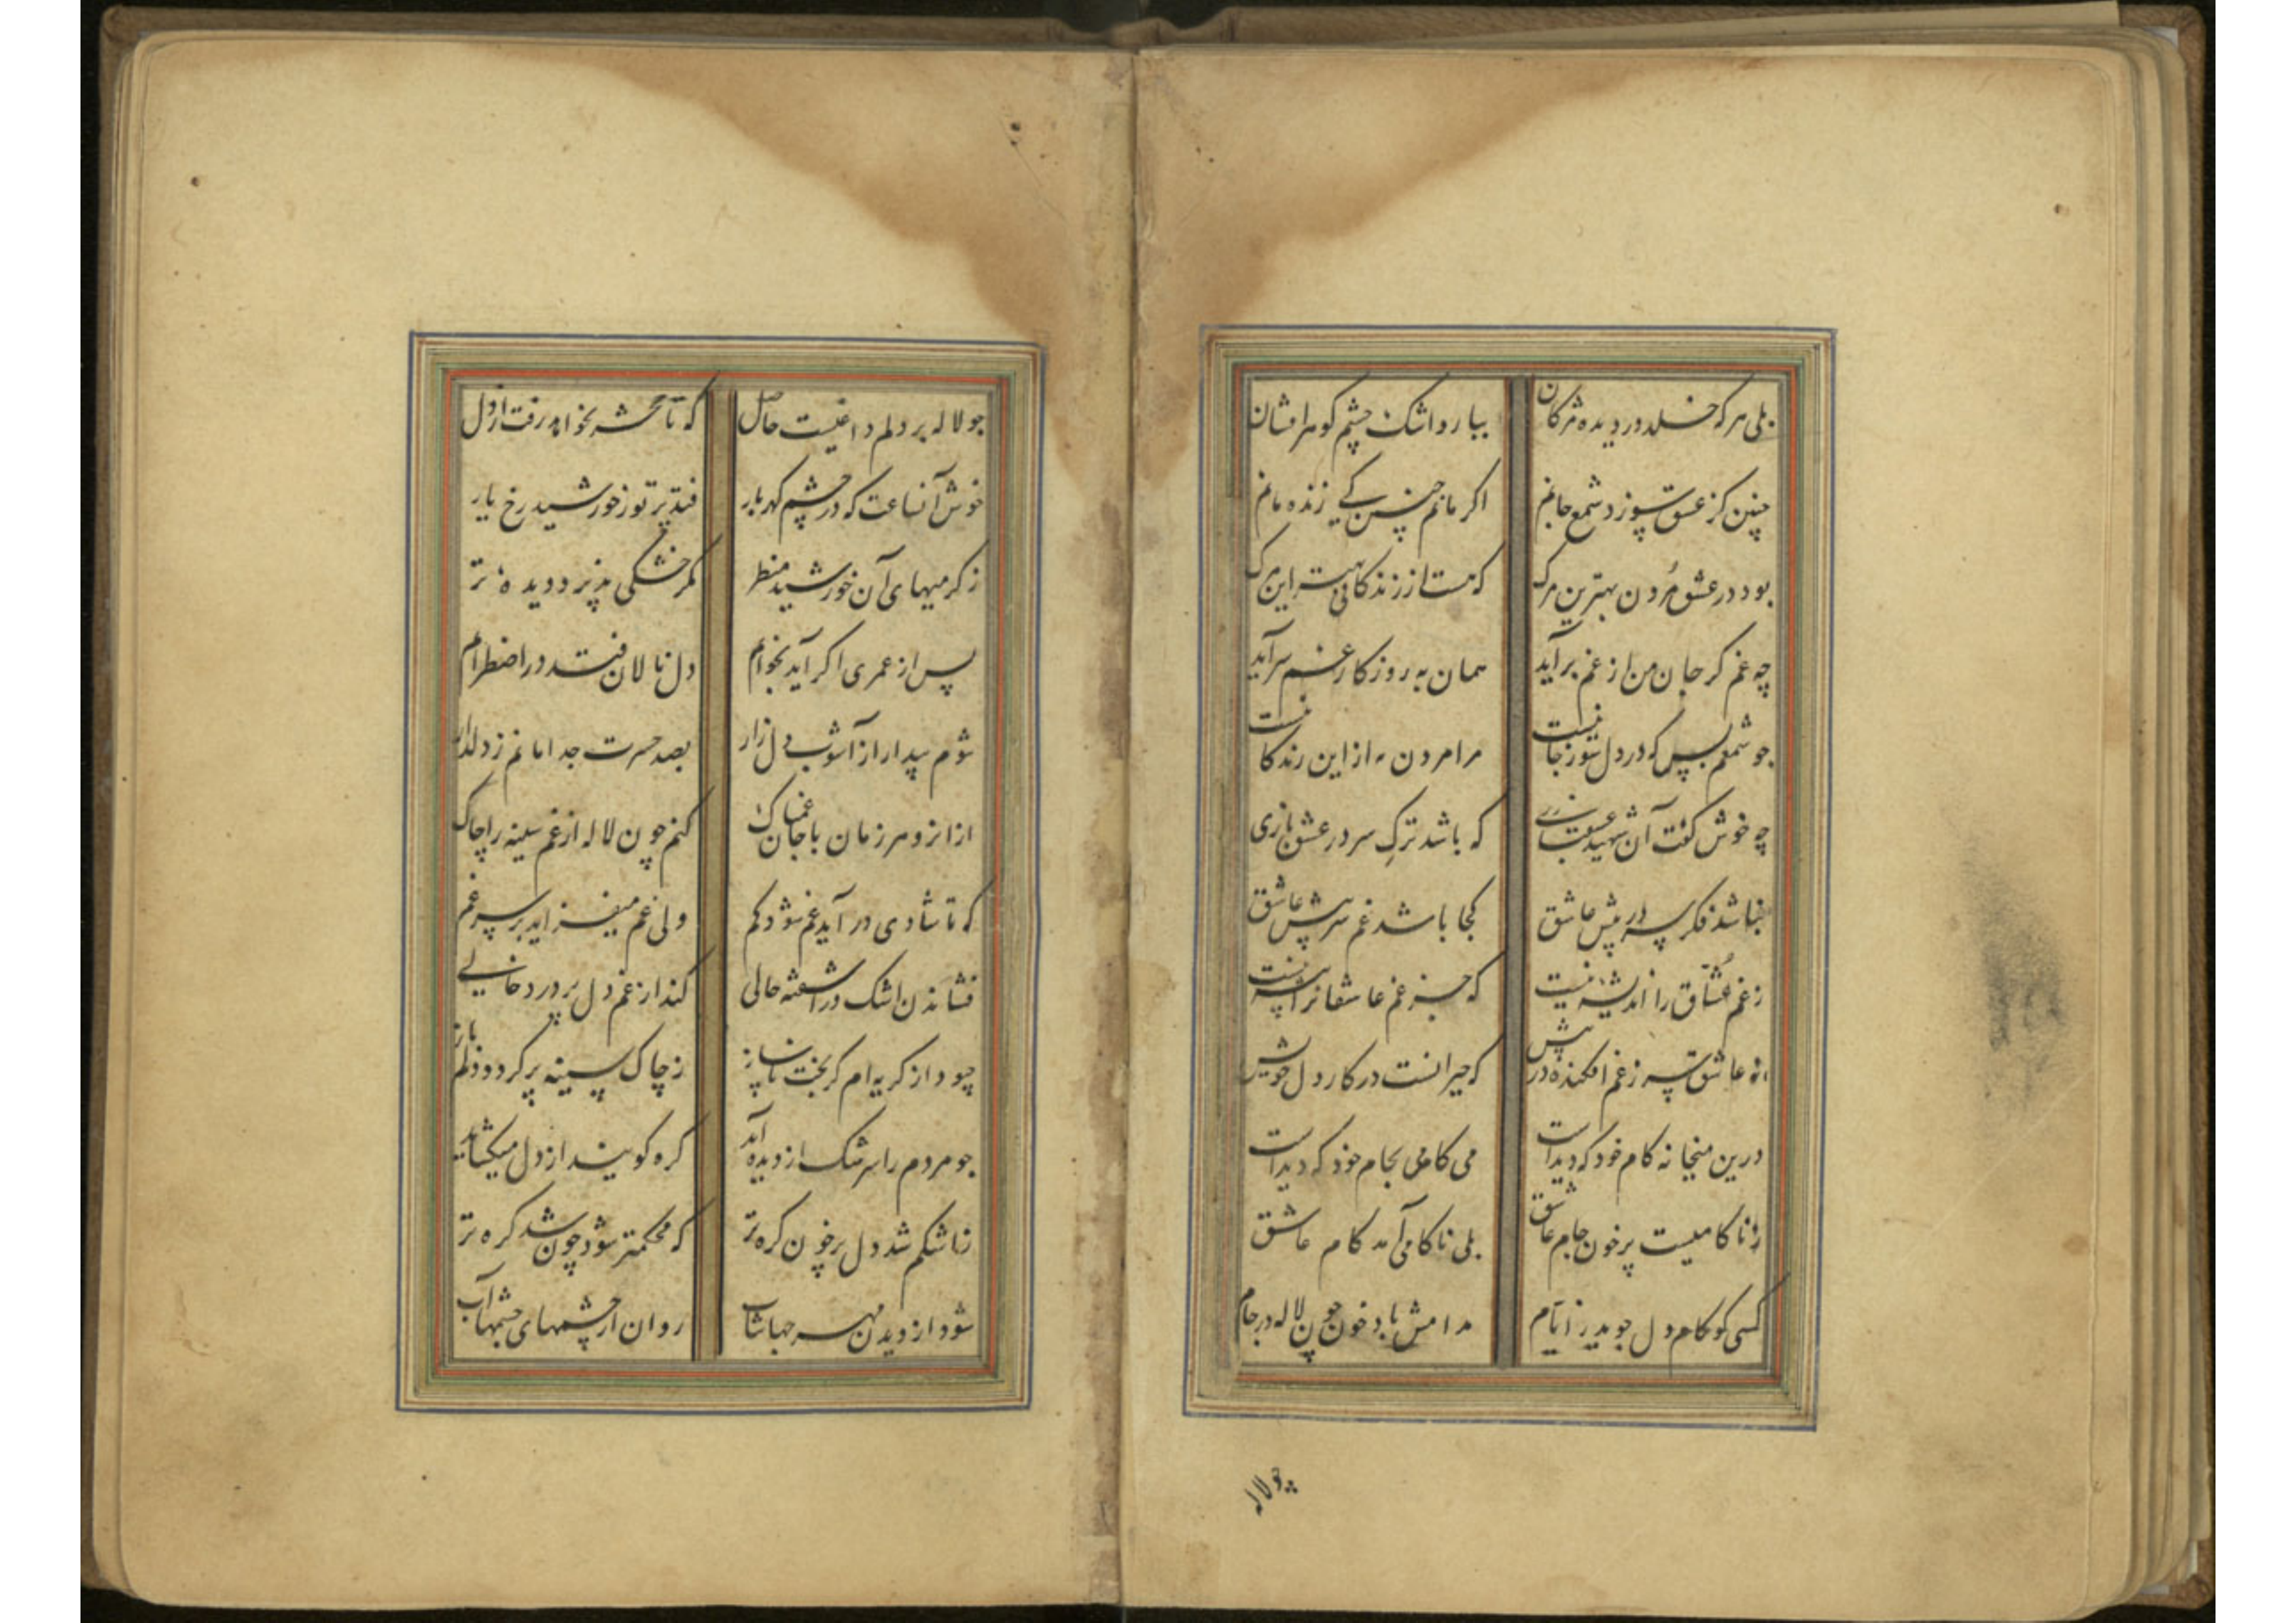 بلی هر که خلد در دیده مژکان
ببارد اشک چشم کوهر افشان
چنین کز عشق سوزد شمع جانم
اکر مانم چنین کی زنده مانم
بود در عشق مُردن بهترین مرک
که هست از زندکانی بهتر این مرک
چه غم کر جان من از غم برآید
همان به روزکار غم سرآید
چو شمعم بس که در دل سوز جانیست
مرا مردن به از این زندکانیست
چه خوش کفت آن شهید عشقبازی
که باشد ترکِ سر در عشق بازی
نباشد فکر سر در پیش عاشق
کجا باشد غم سر پیش عاشق
ز غم عُشّاق را اندیشهٔ نیست
که جز غم عاشقانرا پیشهٔ نیست
نه عاشق سر ز غم افکنده در پیش
که حیرانست در کار دل خویش
درین میخانه کام خود که دیدست
می کامی بجام خود که دیدست
ز ناکامیست پر خون جام عاشق
بلی ناکامی آمد کام عاشق
کسی کو کام دل جوید ز ایّام
مدامش باد خون چون لاله در جام
چو لاله
چو لاله بر دلم داغیست حاصل
که تا حشر نخواهد رفت از دل
خوش آنساعت که در چشم کهربار
فتد پرتو ز خورشید رخ یار
ز کرمیهای آن خورشید منظر
مکر خشکی پذیرد دیدهٔ تر
پس از عمری اکر آید بخوابم
دل نالان فتد در اضطرابم
شوم بیدار از آشوب دل زار
بصد حسرت جدا مانم ز دلدار
ازانرو هر زمان با جان غمناک
کنم چون لاله از غم سینه را چاک
که تا شادی در آید غم شود کم
ولی غم میفزاید بر سر غم
فشاندن اشک در آشفته حالی
کند از غم دل پر درد خالی
چو دل از کریه ام کر بخت ناساز
ز چاک سینه پر کردد دلم باز
چو مردم را سرشک از دیده آید
کره کویند از دل میکشاید
ز اشکم شد دل پر خون کره تر
که محکمتر شود چون شد کره تر
شود از دیدن مهر جهانتاب
روان از چشمهای چشمها آب